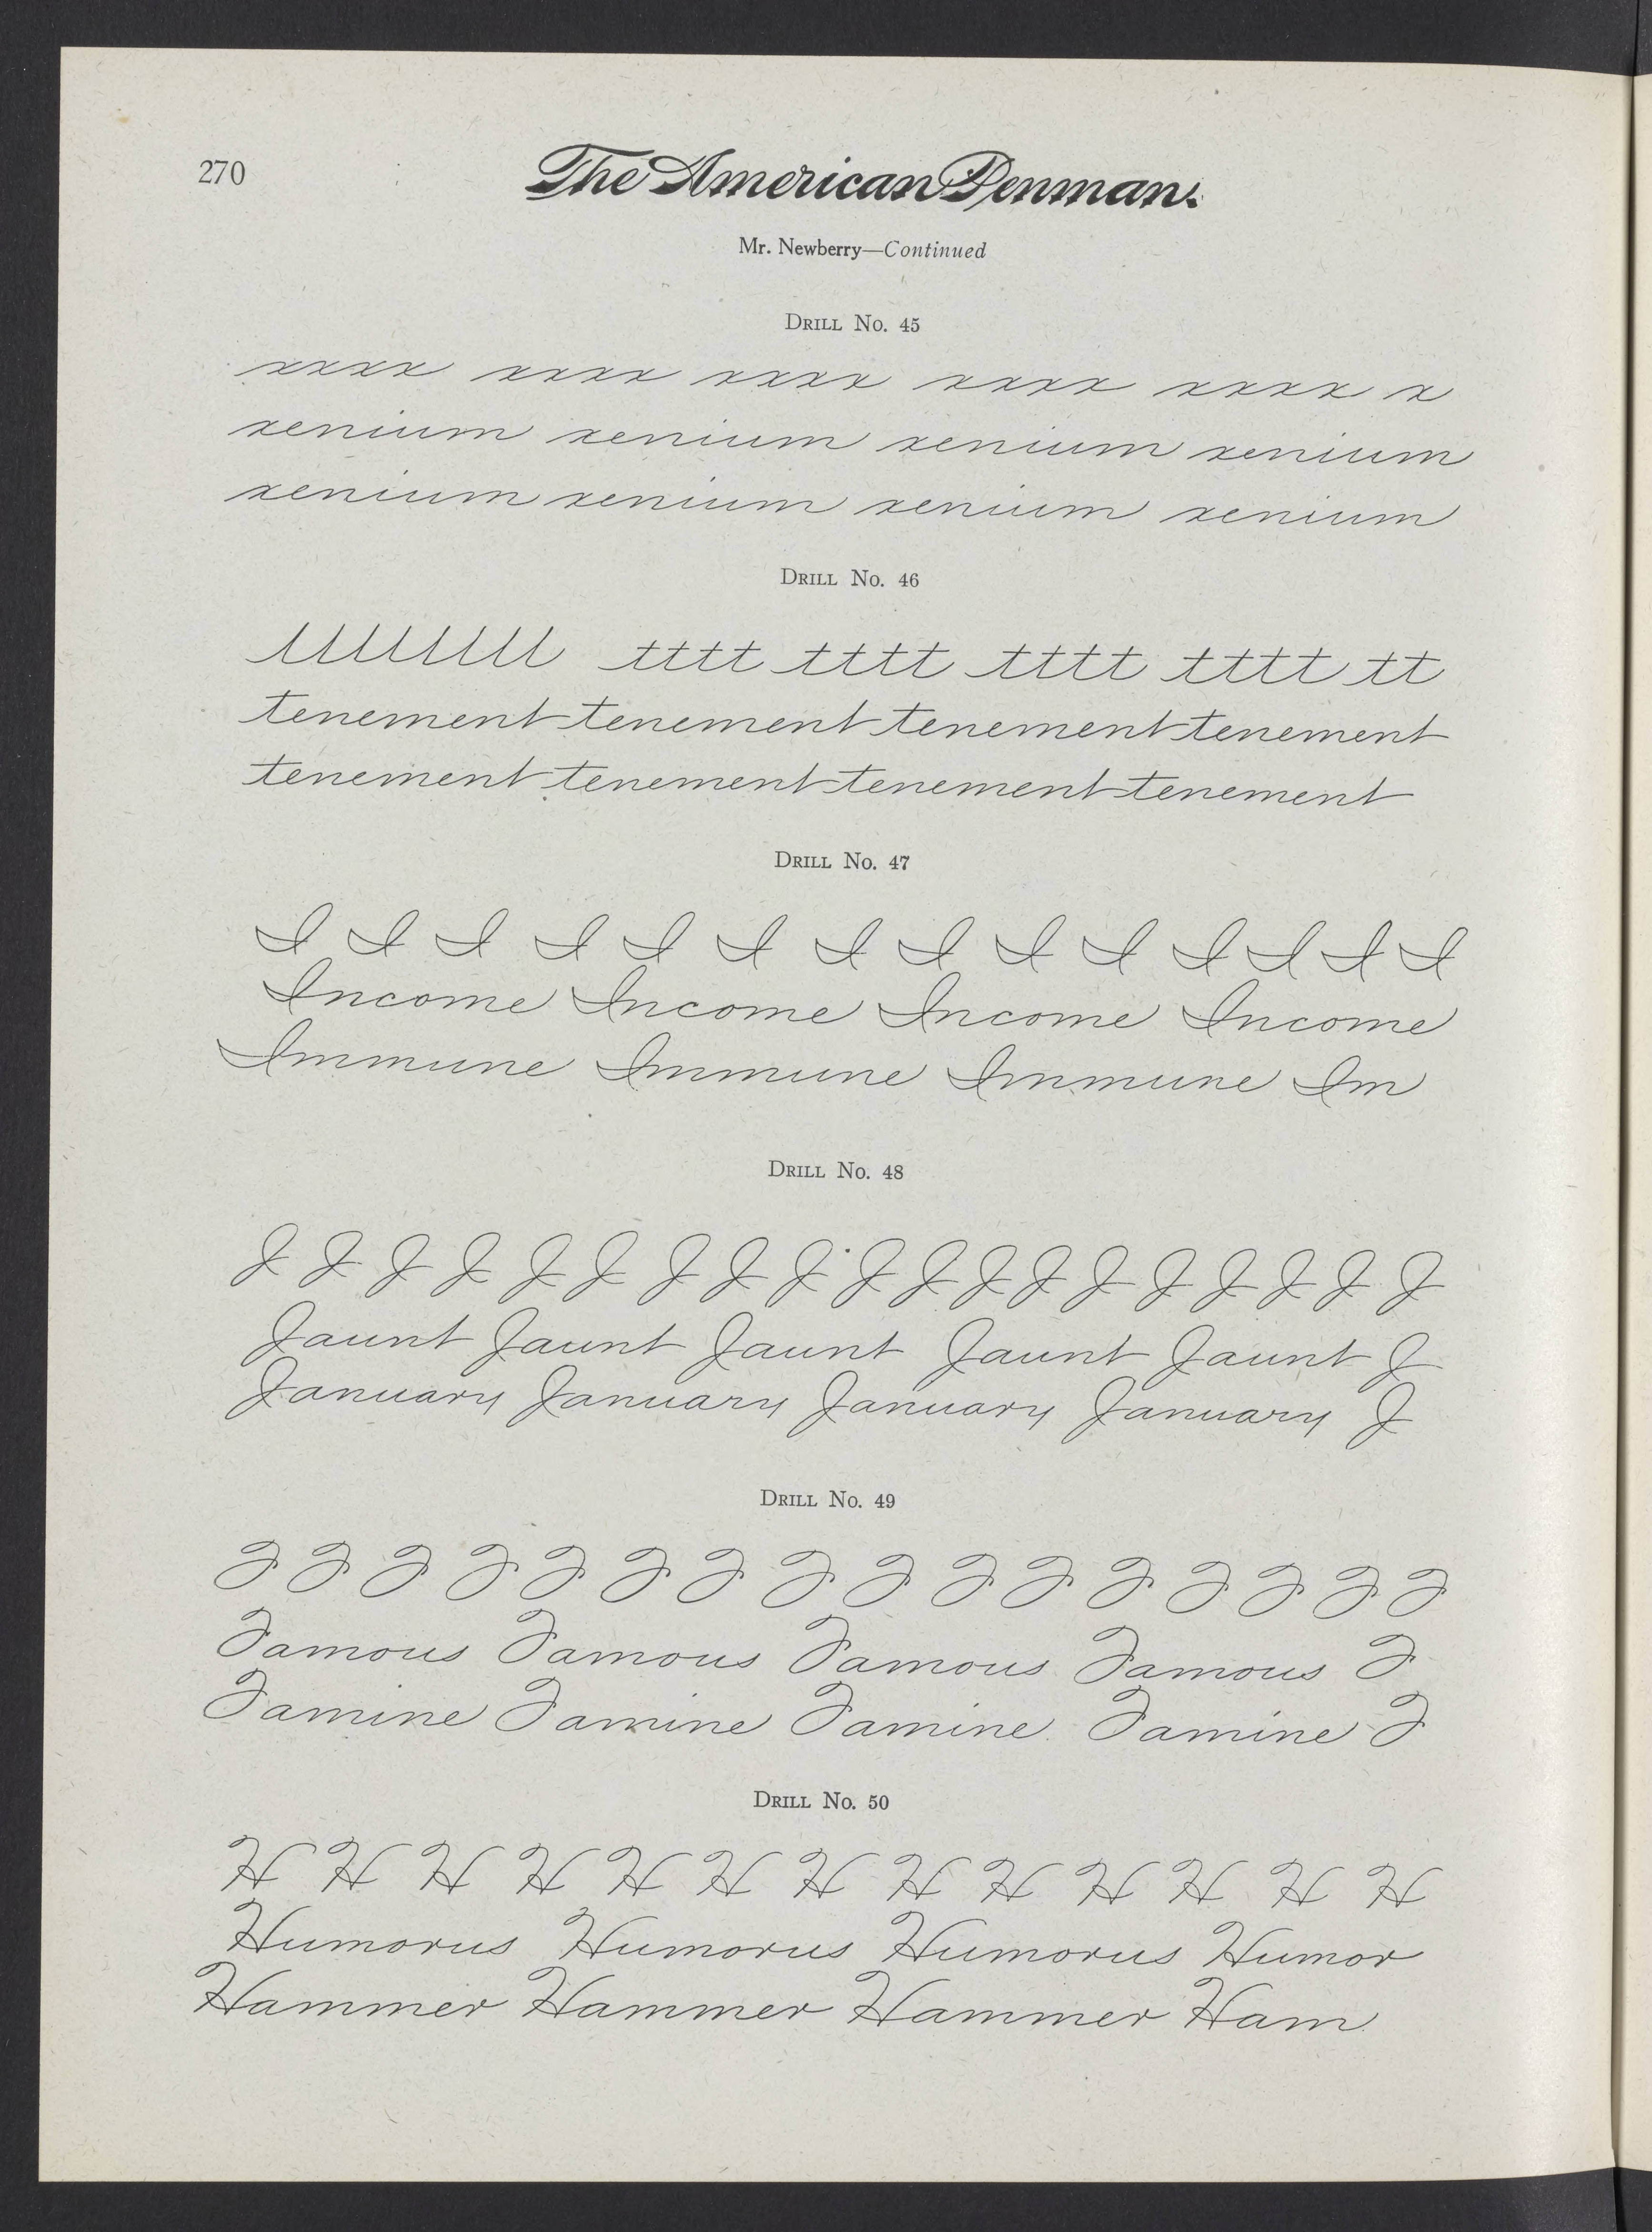 270
The American Penman.
Mr. Newberry—Continued
Drill No. 45
xxxx xxxx xxxx xxxx xxxx x
xenium xenium xenium xenium
xenium xenium xenium xenium
Drill No. 46
tttt tttt tttt tttt tt
tenement tenement tenement tenement
tenement tenement tenement tenement
Drill No. 47
I I I I I I I I I I I I I I
Income Income Income Income
Immune Immune Immune Im
Drill No. 48
J J J J J J J J J J J J J J J J J J J
Jaunt Jaunt Jaunt Jaunt Jaunt J
January January January January J
Drill No. 49
F F F F F F F F F F F F F F F F
Famous Famous Famous Famous F
Famine Famine Famine Famine F
Drill No. 50
H H H H H H H H H H H H H
Humorus Humorus Humorus Humor
Hammer Hammer Hammer Ham